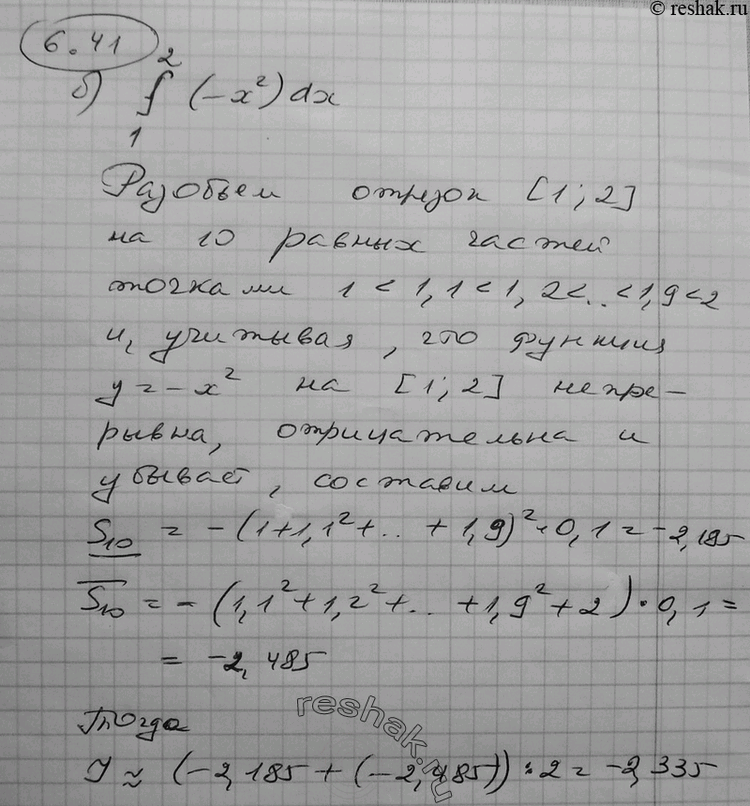 © reshak.ru
6.41
б) ∫₁² (-x²) dx
Разобьем отрезок [1; 2]
на 10 равных частей
точками 1 < 1,1 < 1,2 < .. < 1,9 < 2
и, учитывая, что функция
y = -x² на [1; 2] непре-
рывна, отрицательна и
убывает, составим
S₁₀ = -(1+1,1²+..+1,9)²·0,1 = -2,185
S₁₀ = -(1,1²+1,2²+..+1,9²+2)·0,1 =
= -2,485
Тогда
J ≈ (-2,185 + (-2,485)) : 2 = -2,335
reshak.ru